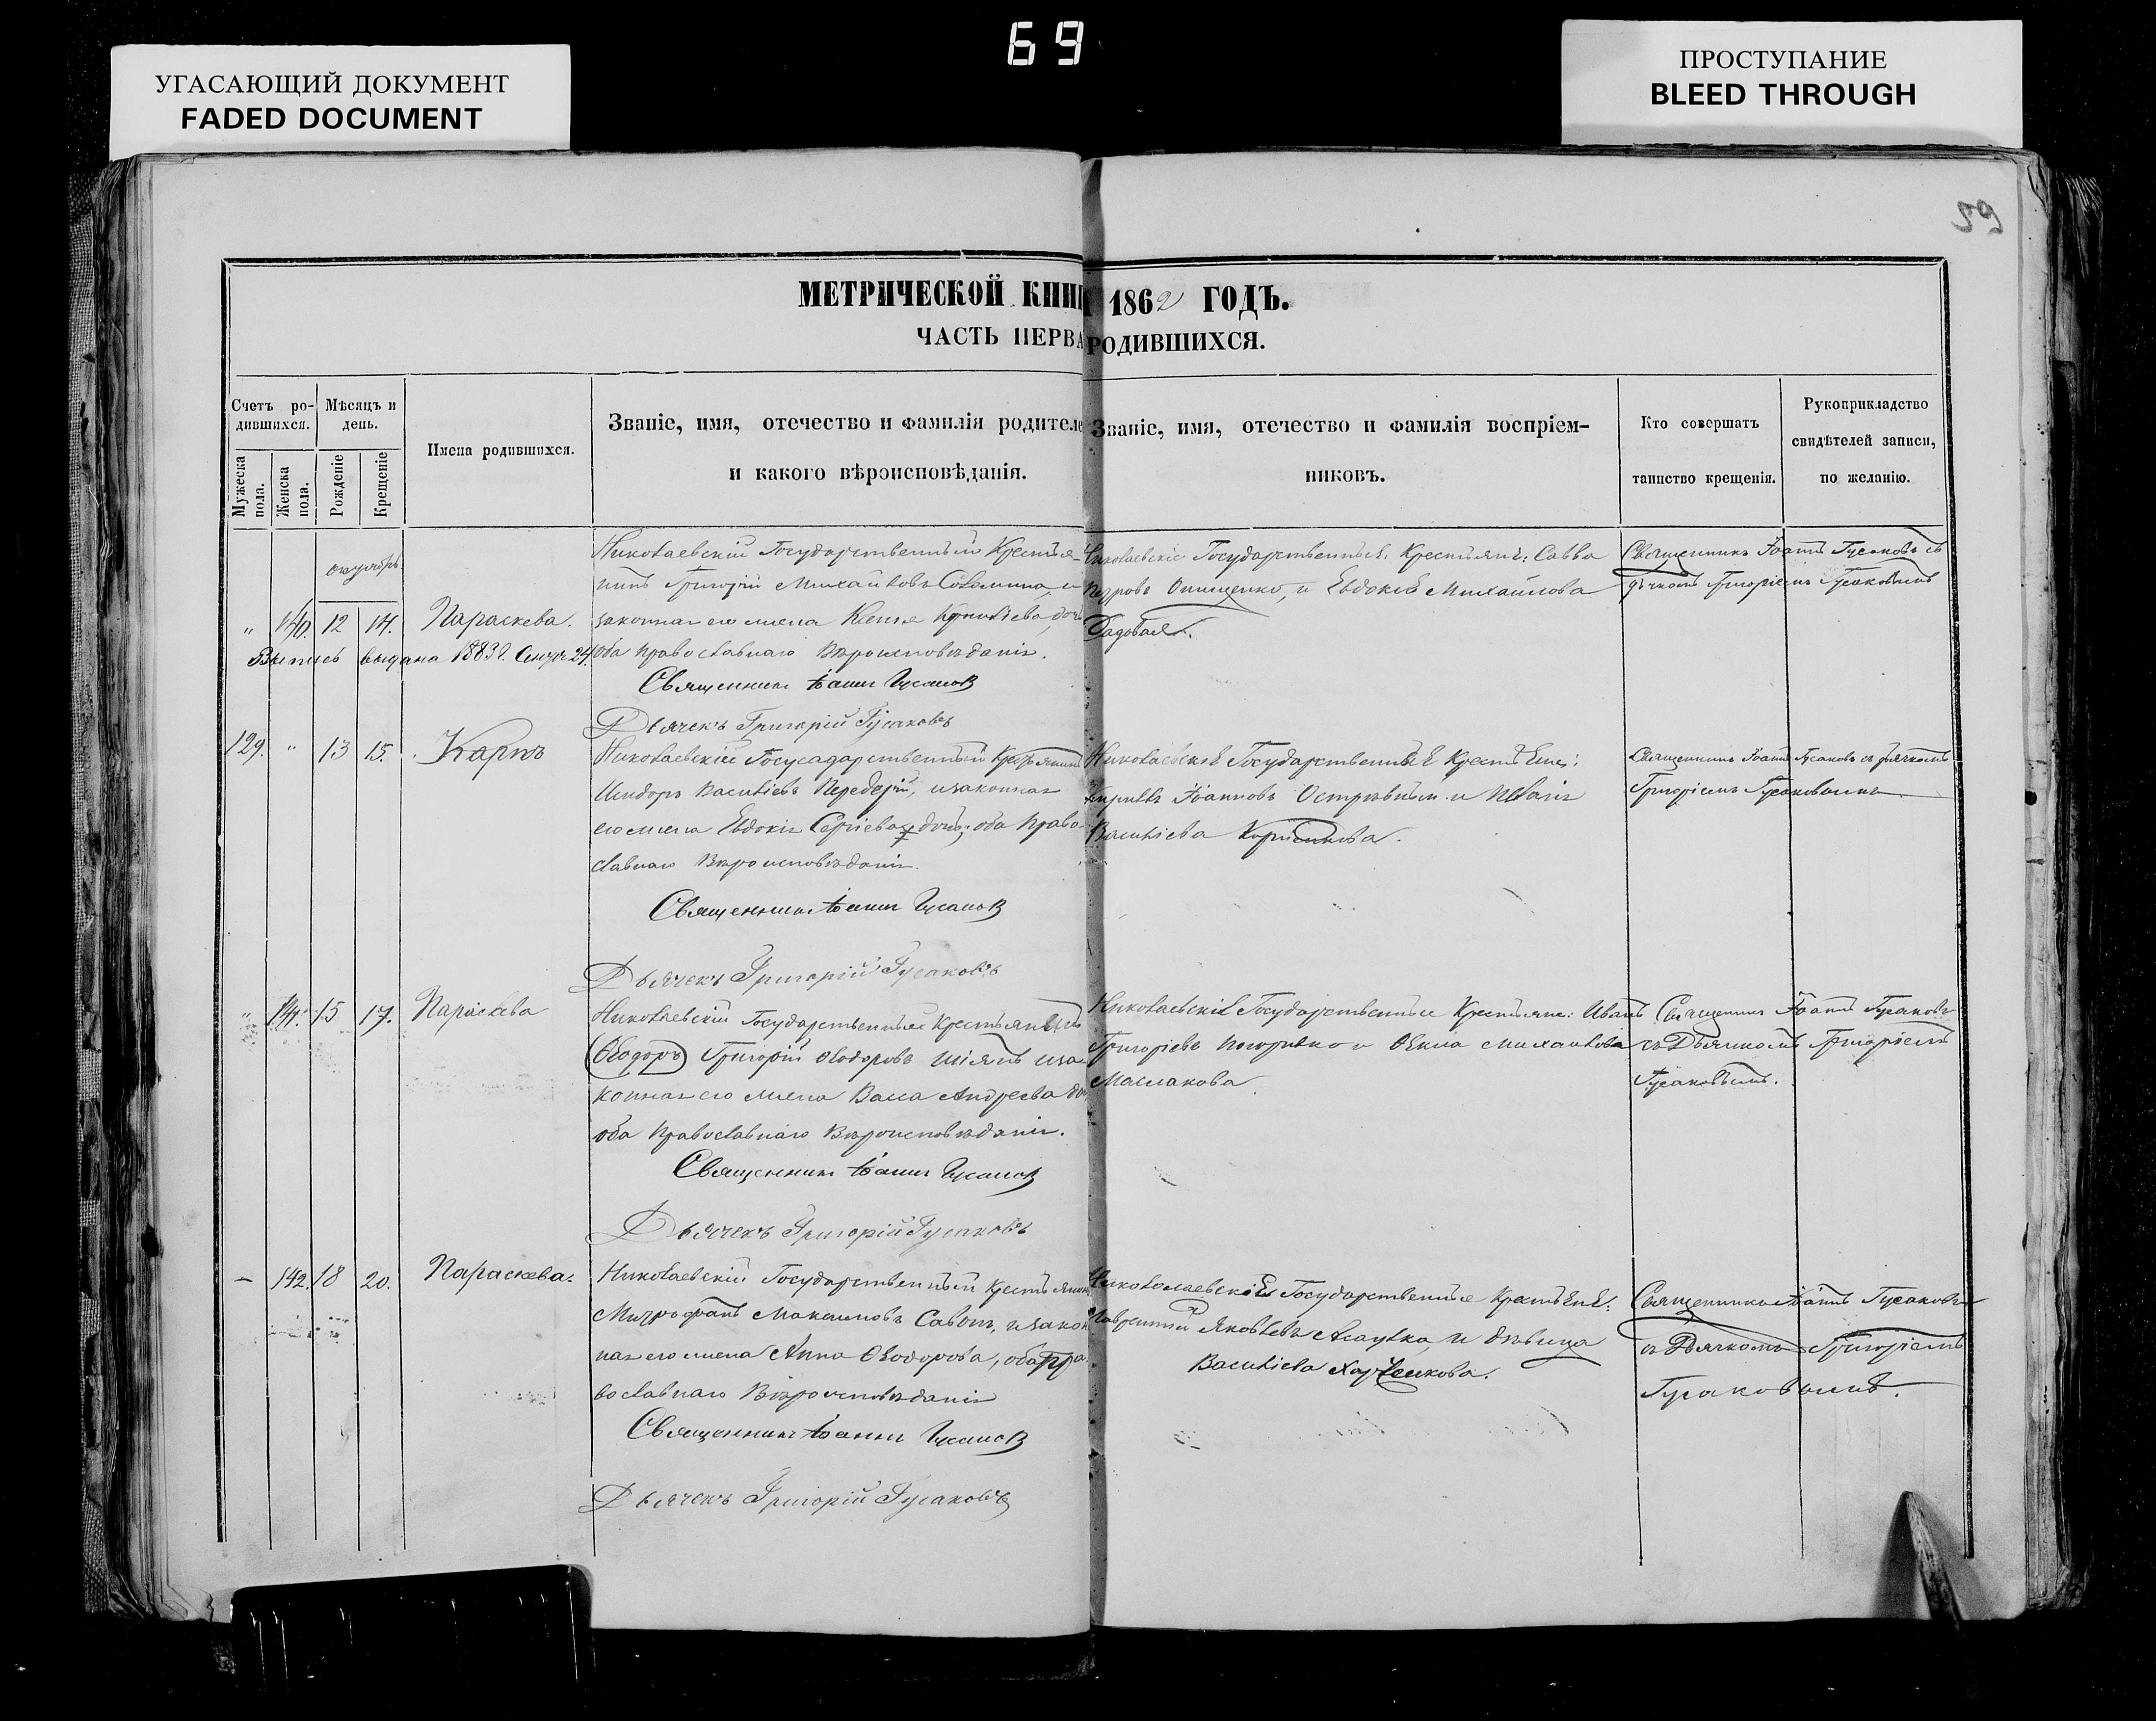 69
УГАСАЮЩИЙ ДОКУМЕНТ
FADED DOCUMENT
ПРОСТУПАНИЕ
BLEED THROUGH
59
МЕТРИЧЕСКОЙ КНИГ 1862 ГОДЪ.
ЧАСТЬ ПЕРВА РОДИВШИХСЯ.
Счетъ ро-
дившихся.
Мужеска
пола.
Женска
пола.
Мѣсяцъ и
день.
Рожденіе
Крещеніе
Имена родившихся.
Званіе, имя, отечество и фамилія родителе
и какого вѣроисповѣданія.
Званіе, имя, отечество и фамилія воспріем-
никовъ.
Кто совершатъ
таинство крещенія.
Рукоприкладство
свидѣтелей записи,
по желанію.
октябрь
" 140. 12 14. Параскева.
Выпись выдана 1883г.
Николаевскій Государственный Крестья-
нинъ Григорій Михайловъ и
законная его жена Ксенія
оба православнаго Вѣроисповѣданія.
Священникъ Іоаннъ Гусаковъ
Дьячекъ Григорій Гусаковъ
Николаевскіе Государственные Крестьяне: Савва
Петровъ Онищенко, и Евдокія Михайлова
Священникъ Іоаннъ Гусаковъ съ
дьячкомъ Григоріемъ Гусаковымъ
129. " 13 15. Карпъ
Николаевскій Крестьянинъ
Исидоръ Васильевъ и законная
его жена Евдокія Сергіева оба Право-
славнаго Вѣроисповѣданія.
Священникъ Іоаннъ Гусаковъ
Дьячекъ Григорій Гусаковъ
Николаевскіе Государственные Крестьяне:
Кириллъ Іоанновъ и
Васильева
Священникъ Іоаннъ Гусаковъ съ дьячкомъ
Григоріемъ Гусаковымъ
" 141. 15 17. Параскева
Николаевскій Государственный Крестьянинъ
Ѳеодоръ Григорій Ѳеодоровъ и за-
конная его жена Васса Андреева
оба Православнаго Вѣроисповѣданія.
Священникъ Іоаннъ Гусаковъ
Дьячекъ Григорій Гусаковъ
Николаевскіе Государственные Крестьяне: Иванъ
Григорьевъ и Ѳекла Михайлова
Маслакова
Священникъ Іоаннъ Гусаковъ
съ Дьячкомъ Григоріемъ
Гусаковымъ.
— 142. 18 20. Параскева.
Николаевскій Государственный Крестьянинъ
Митрофанъ Максимовъ и закон
ная его жена Анна Ѳеодорова, оба Пра-
вославнаго Вѣроисповѣданія
Священникъ Іоаннъ Гусаковъ
Дьячекъ Григорій Гусаковъ
Государственные Крестьяне:
Лаврентій Яковлевъ и дѣвица
Васильева Харченкова.
Священникъ Іоаннъ Гусаковъ
съ Дьячкомъ Григоріемъ
Гусаковымъ.